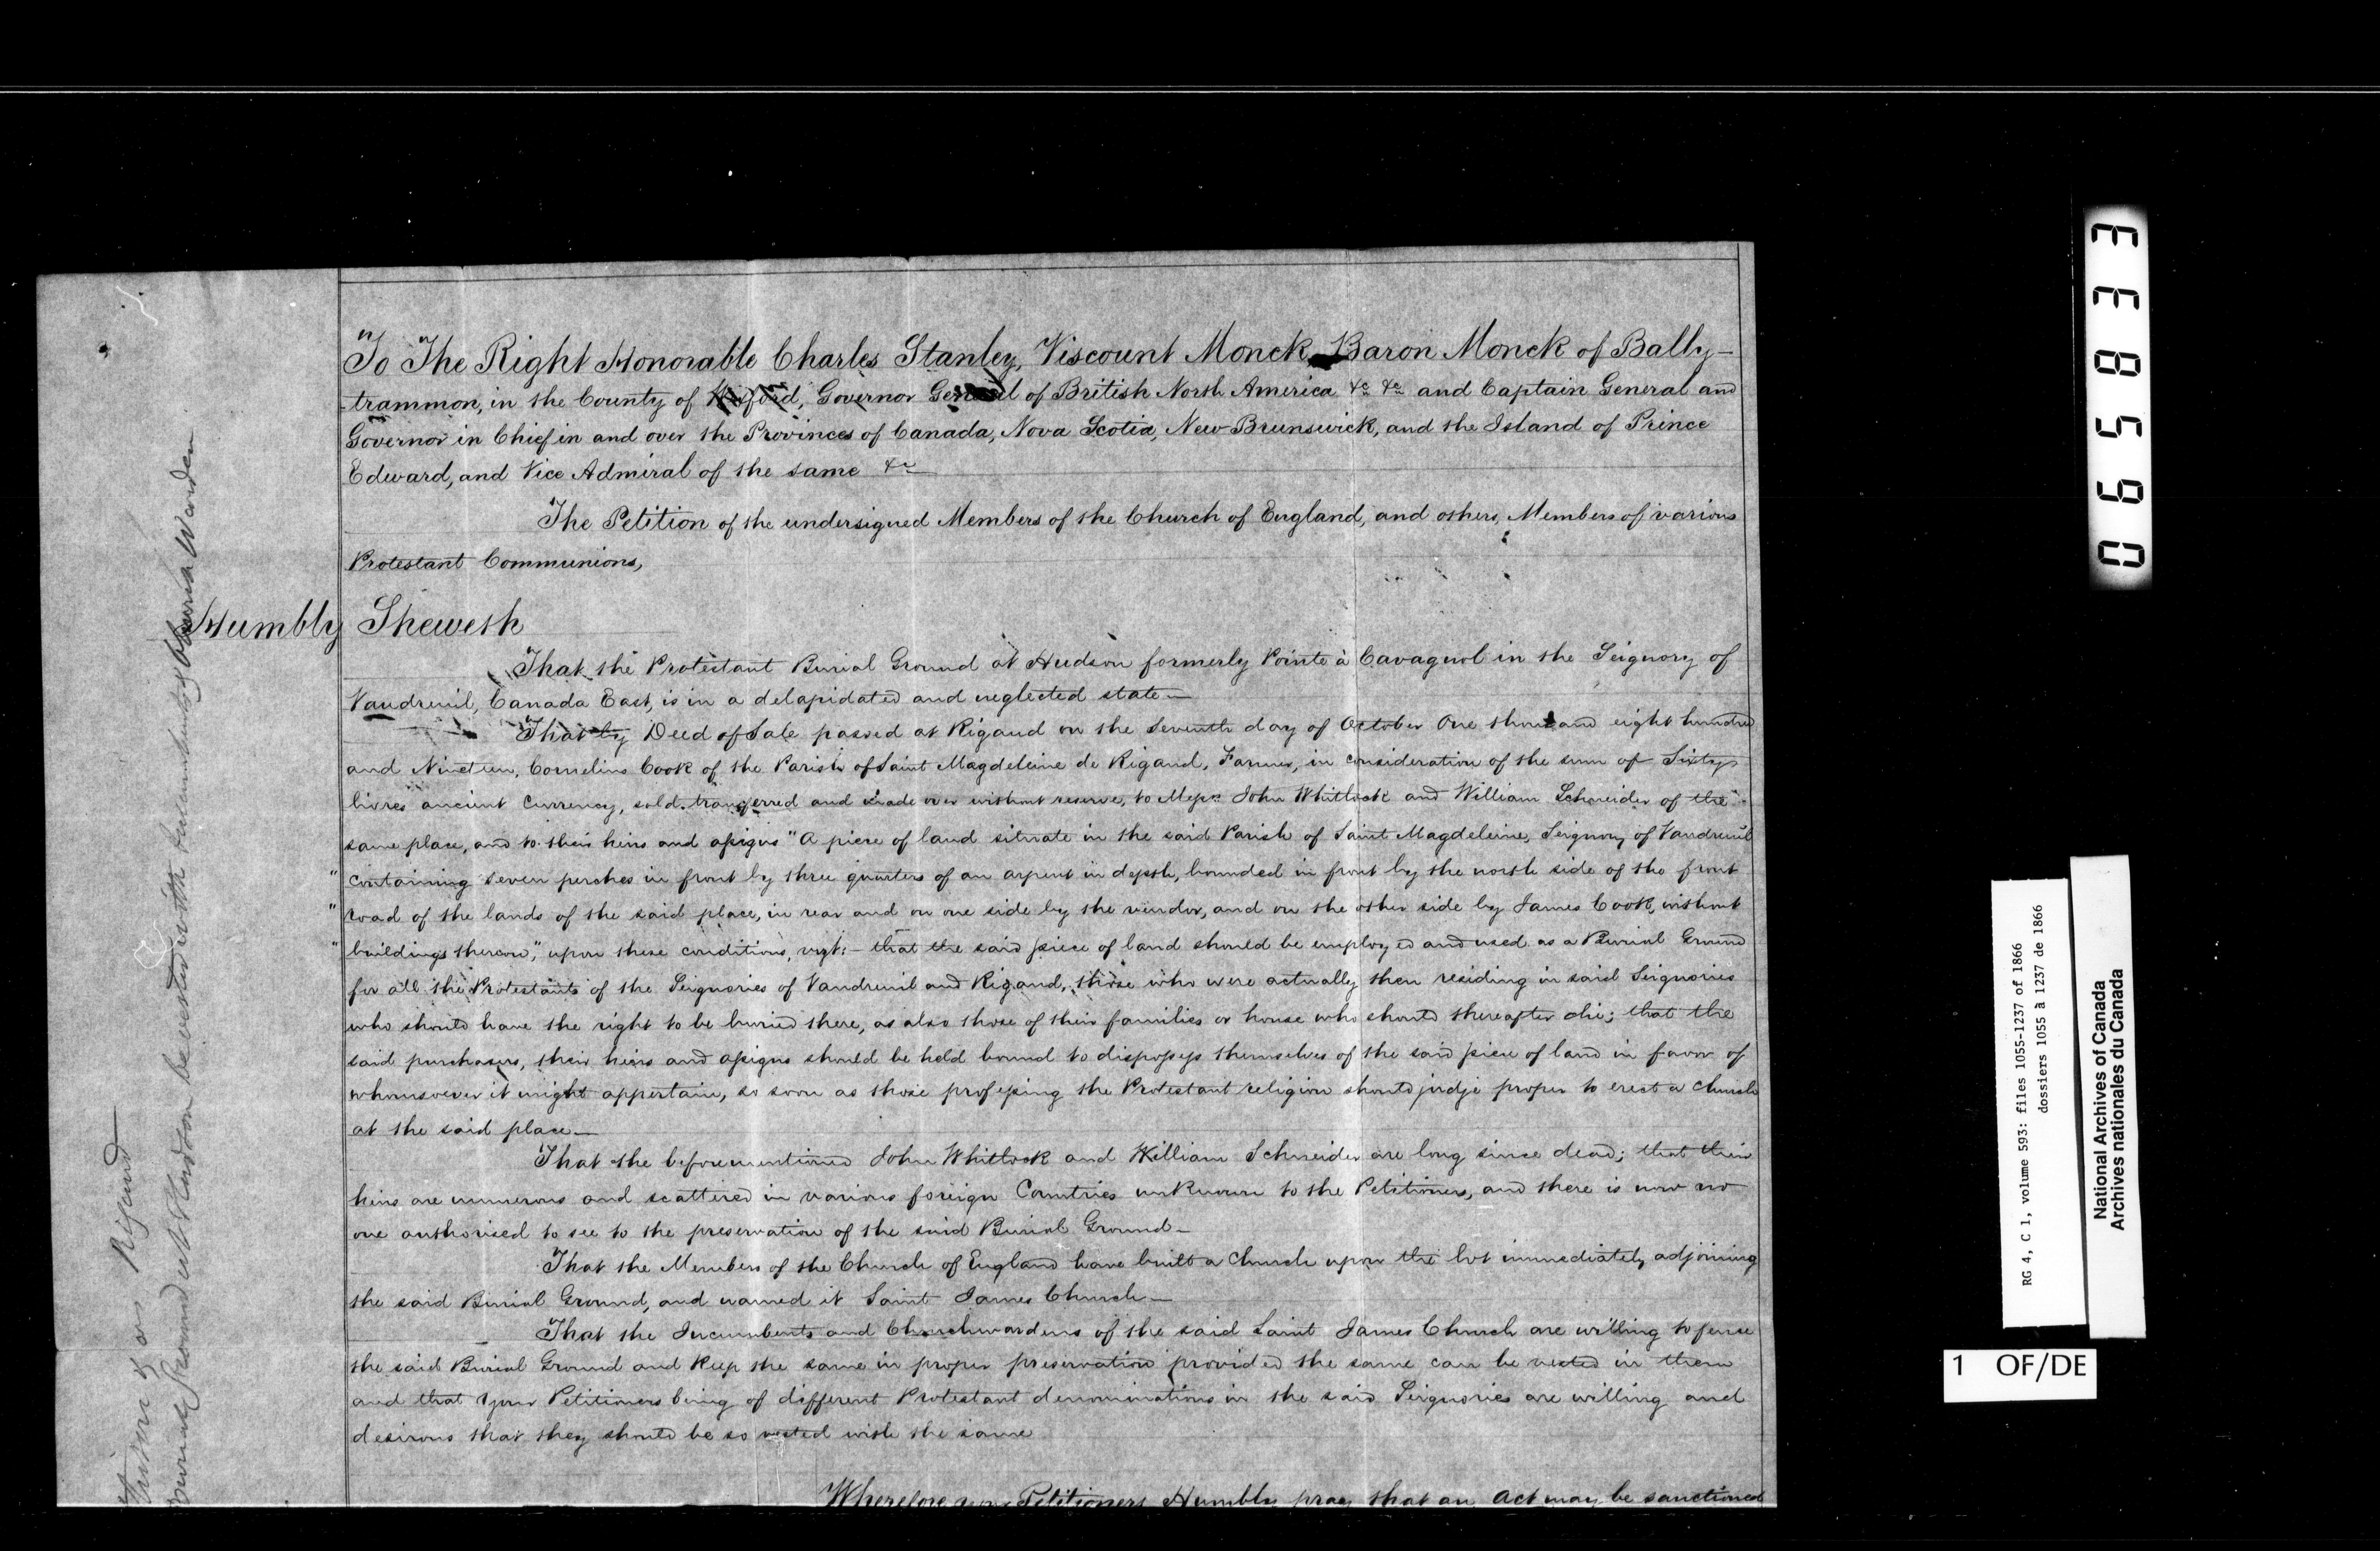 To The Right Honorable Charles Stanley, Viscount Monck Baron Monck of Bally-
-trammon, in the County of Wexford, Governor General of British North America &c &c and Captain General and
Governor in Chief in and over the Provinces of Canada, Nova Scotia, New-Brunswick, and the Island of Prince
Edward, and Vice Admiral of the same &c
The Petition of the undersigned Members of the Church of England, and others, Members of various
Protestant Communions,
Humbly Sheweth
That the Protestant Burial Ground at Hudson formerly Pointe à Cavagnol in the Seignory of
Vaudreuil, Canada East, is in a delapidated and neglected state—
That by Deed of Sale passed at Rigaud on the Seventh day of October One thousand eight hundred
and Nineteen, Cornelius Cook of the Parish of Saint Magdeleine de Rigaud, Farmer, in consideration of the sum of Sixty
livres ancient currency, sold, transferred and made over without reserve, to Messrs John Whitlock and William Schneider of the
same place, and to their heirs and assigns "A piece of land situate in the said Parish of Saint Magdeleine, Seignory of Vaudreuil
" containing seven perches in front by three quarters of an arpent in depth, bounded in front by the north side of the front
" road of the lands of the said place, in rear and on one side by the vendor, and on the other side by James Cook, without
" buildings thereon", upon these conditions, vizt:- that the said piece of land should be employed and used as a Burial Ground
for all the Protestants of the Seignories of Vaudreuil and Rigaud, those who were actually then residing in said Seignories
who should have the right to be buried there, as also those of their families or house who should thereafter die; that the
said purchasers, their heirs and assigns should be held bound to dispossess themselves of the said piece of land in favor of
whomsoever it might appertain, so soon as those professing the Protestant religion should judge proper to erect a Church
at the said place—
That the beforementioned John Whitlock and William Schneider are long since dead; that their
heirs are numerous and scattered in various foreign Countries unknown to the Petitioners, and there is now no
one authorised to see to the preservation of the said Burial Ground—
That the Members of the Church of England have built a Church upon the lot immediately adjoining
the said Burial Ground, and named it Saint James Church—
That the Incumbents and Churchwardens of the said Saint James Church are willing to fence
the said Burial Ground and keep the same in proper preservation provided the same can be vested in them
and that your Petitioners being of different Protestant denominations in the said Seignories are willing and
desirous that they should be so vested with the same
Wherefore your Petitioners Humbly pray that an Act may be sanctioned
Rigaud
Burial Ground at Hudson be vested with Incumbents & Church Warden
065833
RG 4, C 1, volume 593: files 1055-1237 of 1866
dossiers 1055 à 1237 de 1866
National Archives of Canada
Archives nationales du Canada
1 OF/DE